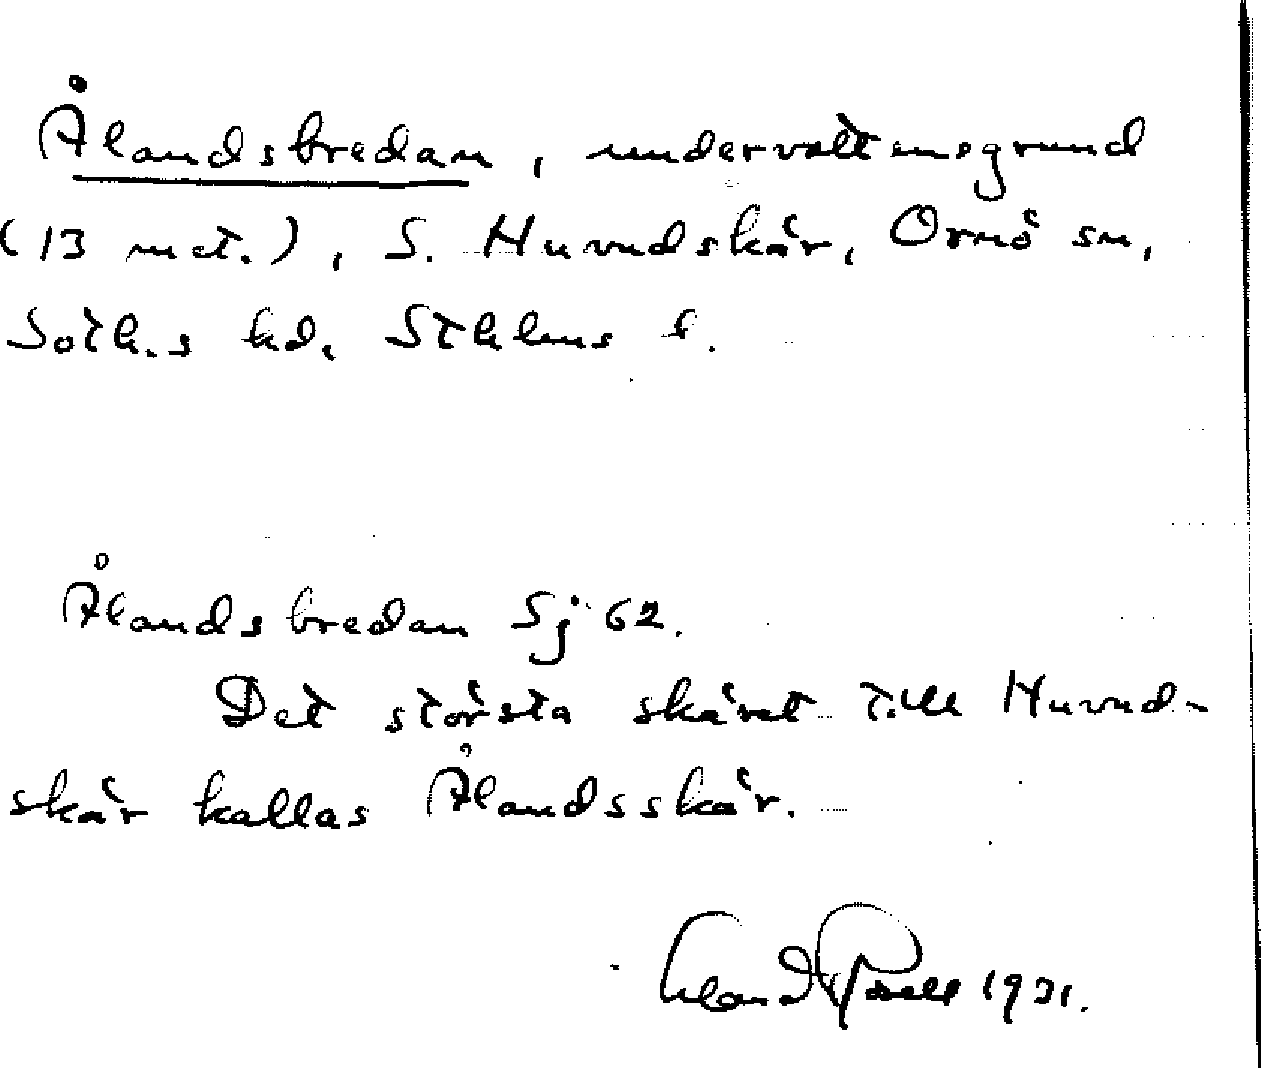 Ålandsbredan, undervattensgrund
(13 met.), S. Huvudskär, Ornö sn,
Soth.s hd, Sthlms l.
Ålandsbredan Sj 62.
Det största skäret till Huvud-
skär kallas Ålandsskär.
1931.